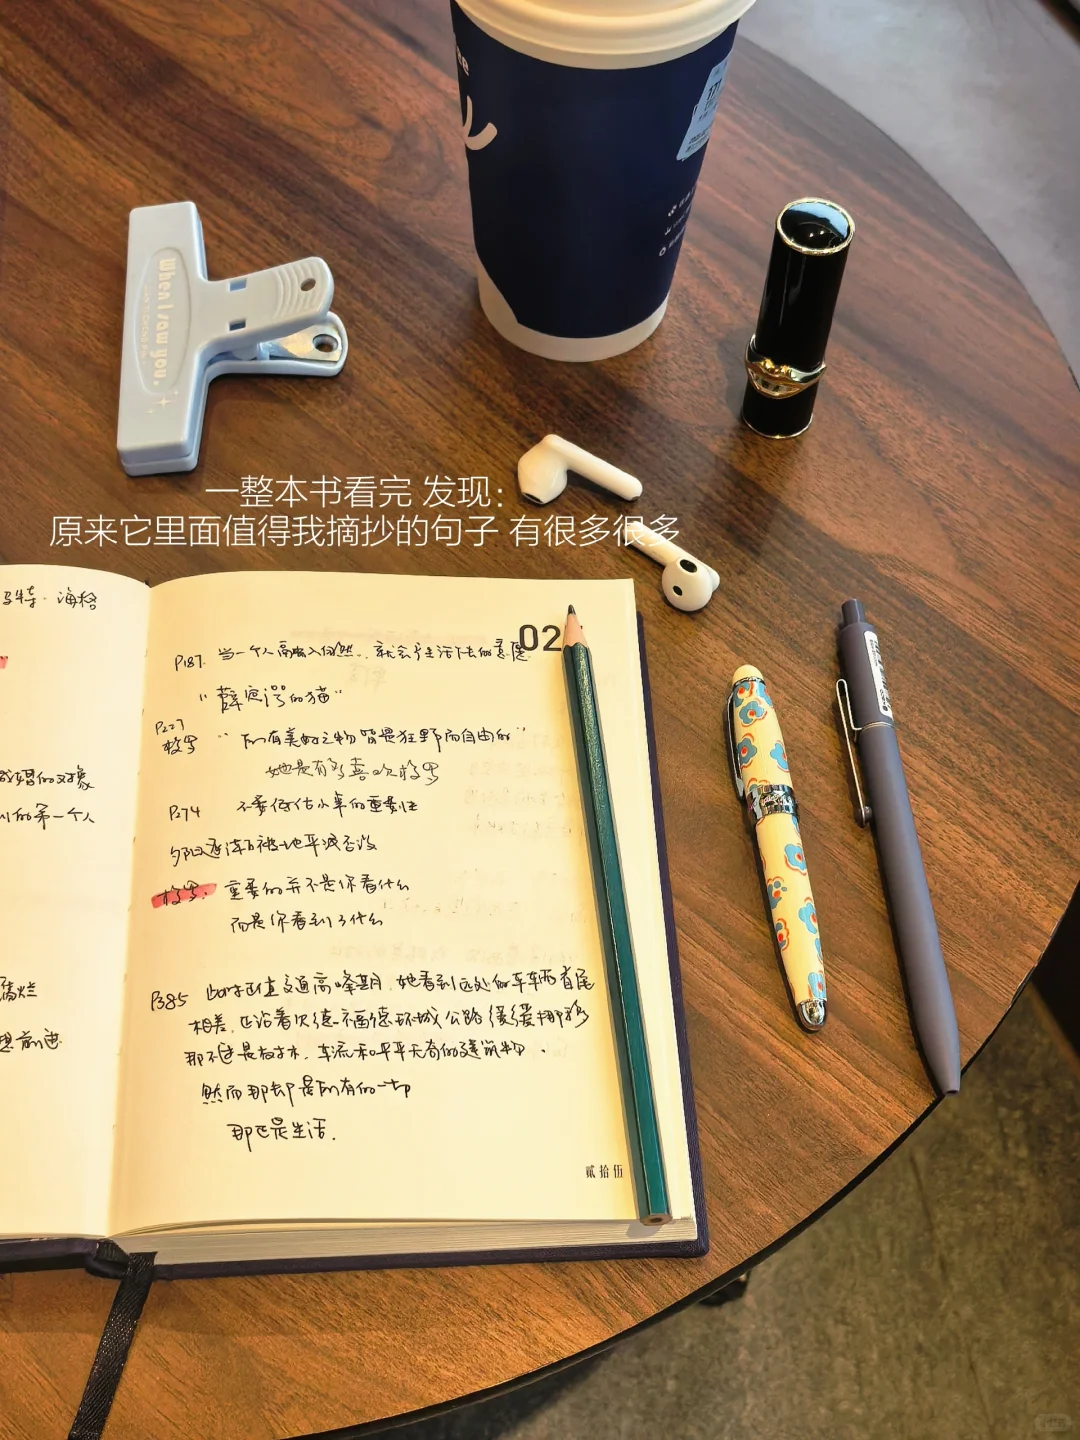 ee
171
When I saw you.
一整本书看完 发现：
原来它里面值得我摘抄的句子 有很多很多
马特·海格
02
P187. 当一个人融入自然，就会产生活下去的意愿
"薛定谔的猫"
P227
梭罗 "所有美好之物皆是狂野而自由的"
她是有多喜欢梭罗
P274 不要低估小事的重要性
夕阳逐渐被地平线吞没
梭罗: 重要的并不是你看什么
而是你看到了什么
的对象
的第一个人
腐烂
想前进
P385 此时正值交通高峰期，她看到远处的车辆首尾
相差，正沿着贝德福德环城公路缓缓挪移
那不过是树木，车流和平平无奇的建筑物.
然而那却是所有的一切
那正是生活.
贰拾伍